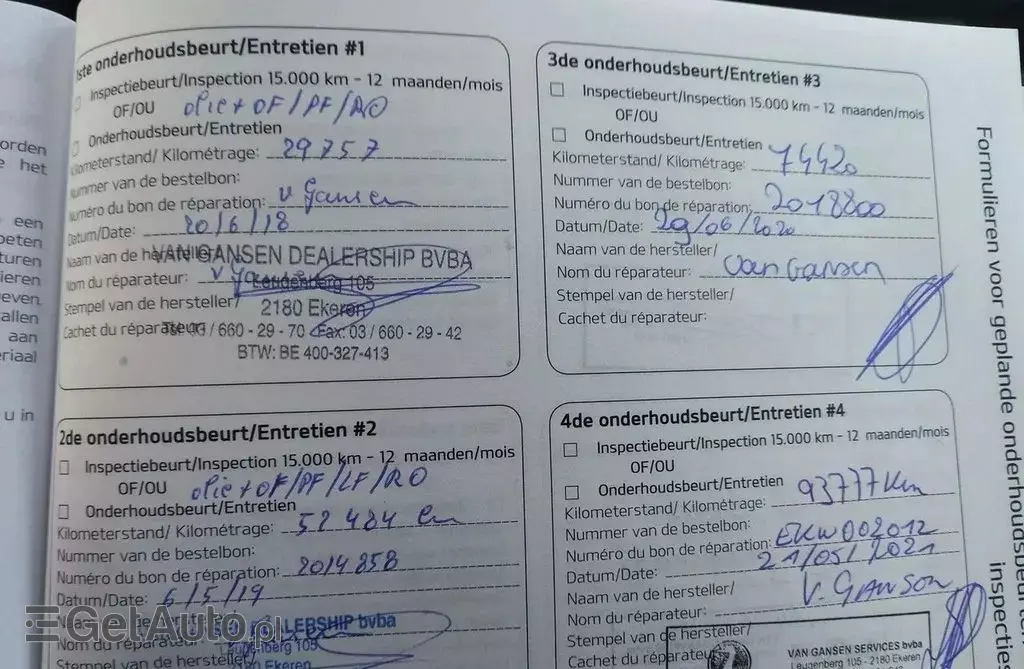 orden
e het
een
oeten
turen
ieren
even.
allen
aan
eriaal
u in
1ste onderhoudsbeurt/Entretien #1
Inspectiebeurt/Inspection 15.000 km - 12 maanden/mois
OF/OU olie + OF/PF/RO
Onderhoudsbeurt/Entretien
Kilometerstand/ Kilométrage: 29757
Nummer van de bestelbon:
Numéro du bon de réparation: v Gansen
Datum/Date: 20/6/18
Naam van de hersteller/
VAN GANSEN DEALERSHIP BVBA
Nom du réparateur:
Leugenberg 105
Stempel van de hersteller/
2180 Ekeren
Cachet du réparateur:
Tel: 03 / 660 - 29 - 70 Fax: 03 / 660 - 29 - 42
BTW: BE 400-327-413
2de onderhoudsbeurt/Entretien #2
Inspectiebeurt/Inspection 15.000 km - 12 maanden/mois
OF/OU olie + OF/PF/LF/RO
Onderhoudsbeurt/Entretien
Kilometerstand/ Kilométrage: 52484 km
Nummer van de bestelbon:
Numéro du bon de réparation: 2014858
Datum/Date: 6/5/19
DEALERSHIP bvba
Nom du réparateur:
Leugenberg 105
Stempel van de hersteller/
2180 Ekeren
3de onderhoudsbeurt/Entretien #3
Inspectiebeurt/Inspection 15.000 km - 12 maanden/mois
OF/OU
Onderhoudsbeurt/Entretien
Kilometerstand/ Kilométrage: 74420
Nummer van de bestelbon:
Numéro du bon de réparation: 2018800
Datum/Date: 29/06/2020
Naam van de hersteller/
Nom du réparateur: Van Gansen
Stempel van de hersteller/
Cachet du réparateur:
4de onderhoudsbeurt/Entretien #4
Inspectiebeurt/Inspection 15.000 km - 12 maanden/mois
OF/OU
Onderhoudsbeurt/Entretien
Kilometerstand/ Kilométrage: 93777 km
Nummer van de bestelbon:
Numéro du bon de réparation: EKW002012
Datum/Date: 21/05/2021
Naam van de hersteller/
Nom du réparateur: V. GANSON
Stempel van de hersteller/
Cachet du réparateur:
VAN GANSEN SERVICES bvba
Leugenberg 105 - 2180 Ekeren
Formulieren voor geplande onderhoudsbeurt
inspecties
GetAuto.pl